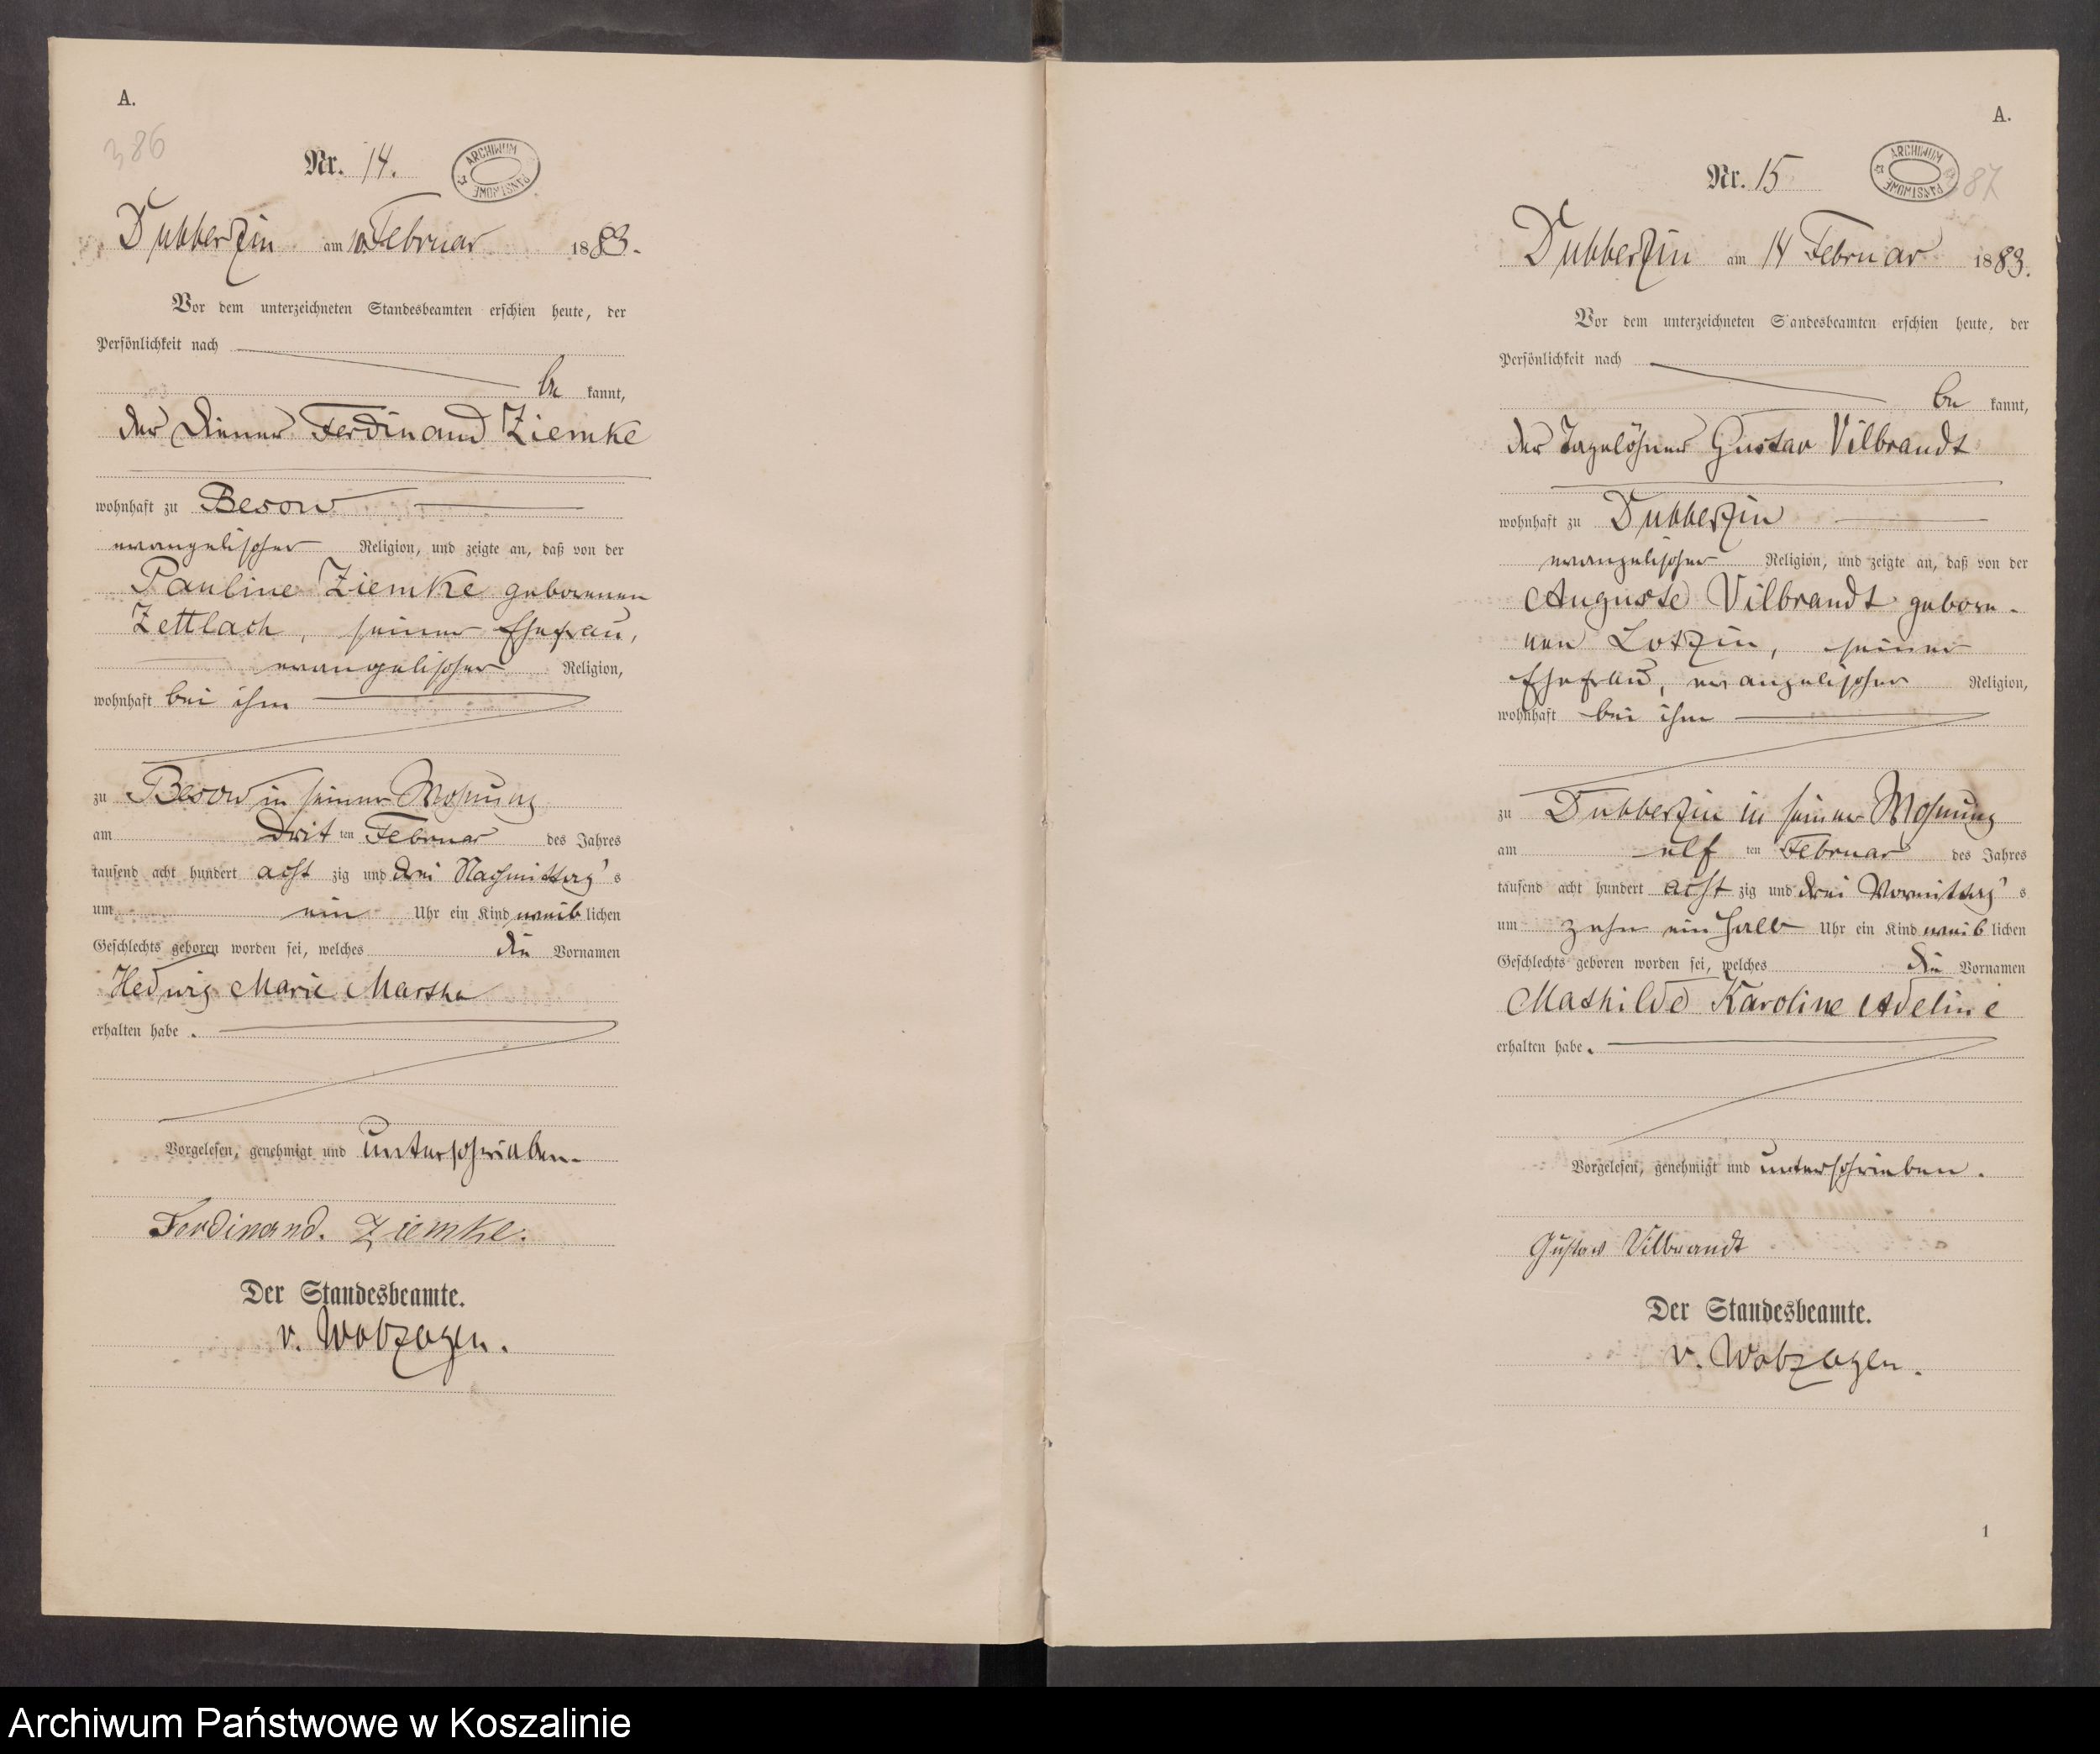 A.
386
Nr. 14.
ARCHIWUM PAŃSTWOWE
Dubberzin am 10. Februar 1883.
Vor dem unterzeichneten Standesbeamten erschien heute, der
Persönlichkeit nach
be kannt,
der Diener Ferdinand Ziemke
wohnhaft zu Besow
evangelischer Religion, und zeigte an, daß von der
Pauline Ziemke geborenen
Zettlach, seiner Ehefrau,
evangelischer Religion,
wohnhaft bei ihm
zu Besow in seiner Wohnung
am drit ten Februar des Jahres
tausend acht hundert acht zig und drei Nachmittag's
um ein Uhr ein Kind weib lichen
Geschlechts geboren worden sei, welches die Vornamen
Hedwig Marie Martha
erhalten habe.
Vorgelesen, genehmigt und unterschrieben.
Ferdinand. Ziemke.
Der Standesbeamte.
A.
Nr. 15
ARCHIWUM PAŃSTWOWE
87
Dubberzin am 14 Februar 1883.
Vor dem unterzeichneten Standesbeamten erschien heute, der
Persönlichkeit nach
be kannt,
der Tagelöhner Gustav Vilbrandt
wohnhaft zu Dubberzin
evangelischer Religion, und zeigte an, daß von der
Auguste Vilbrandt gebore-
nen Lotzin, seiner
Ehefrau, evangelischer Religion,
wohnhaft bei ihm
zu Dubberzin in seiner Wohnung
am elf ten Februar des Jahres
tausend acht hundert acht zig und drei Vormittag's
um zehn ein halb Uhr ein Kind weib lichen
Geschlechts geboren worden sei, welches die Vornamen
Mathilde Karoline Adeline
erhalten habe.
Vorgelesen, genehmigt und unterschrieben.
Gustav Vilbrandt
Der Standesbeamte.
1
Archiwum Państwowe w Koszalinie